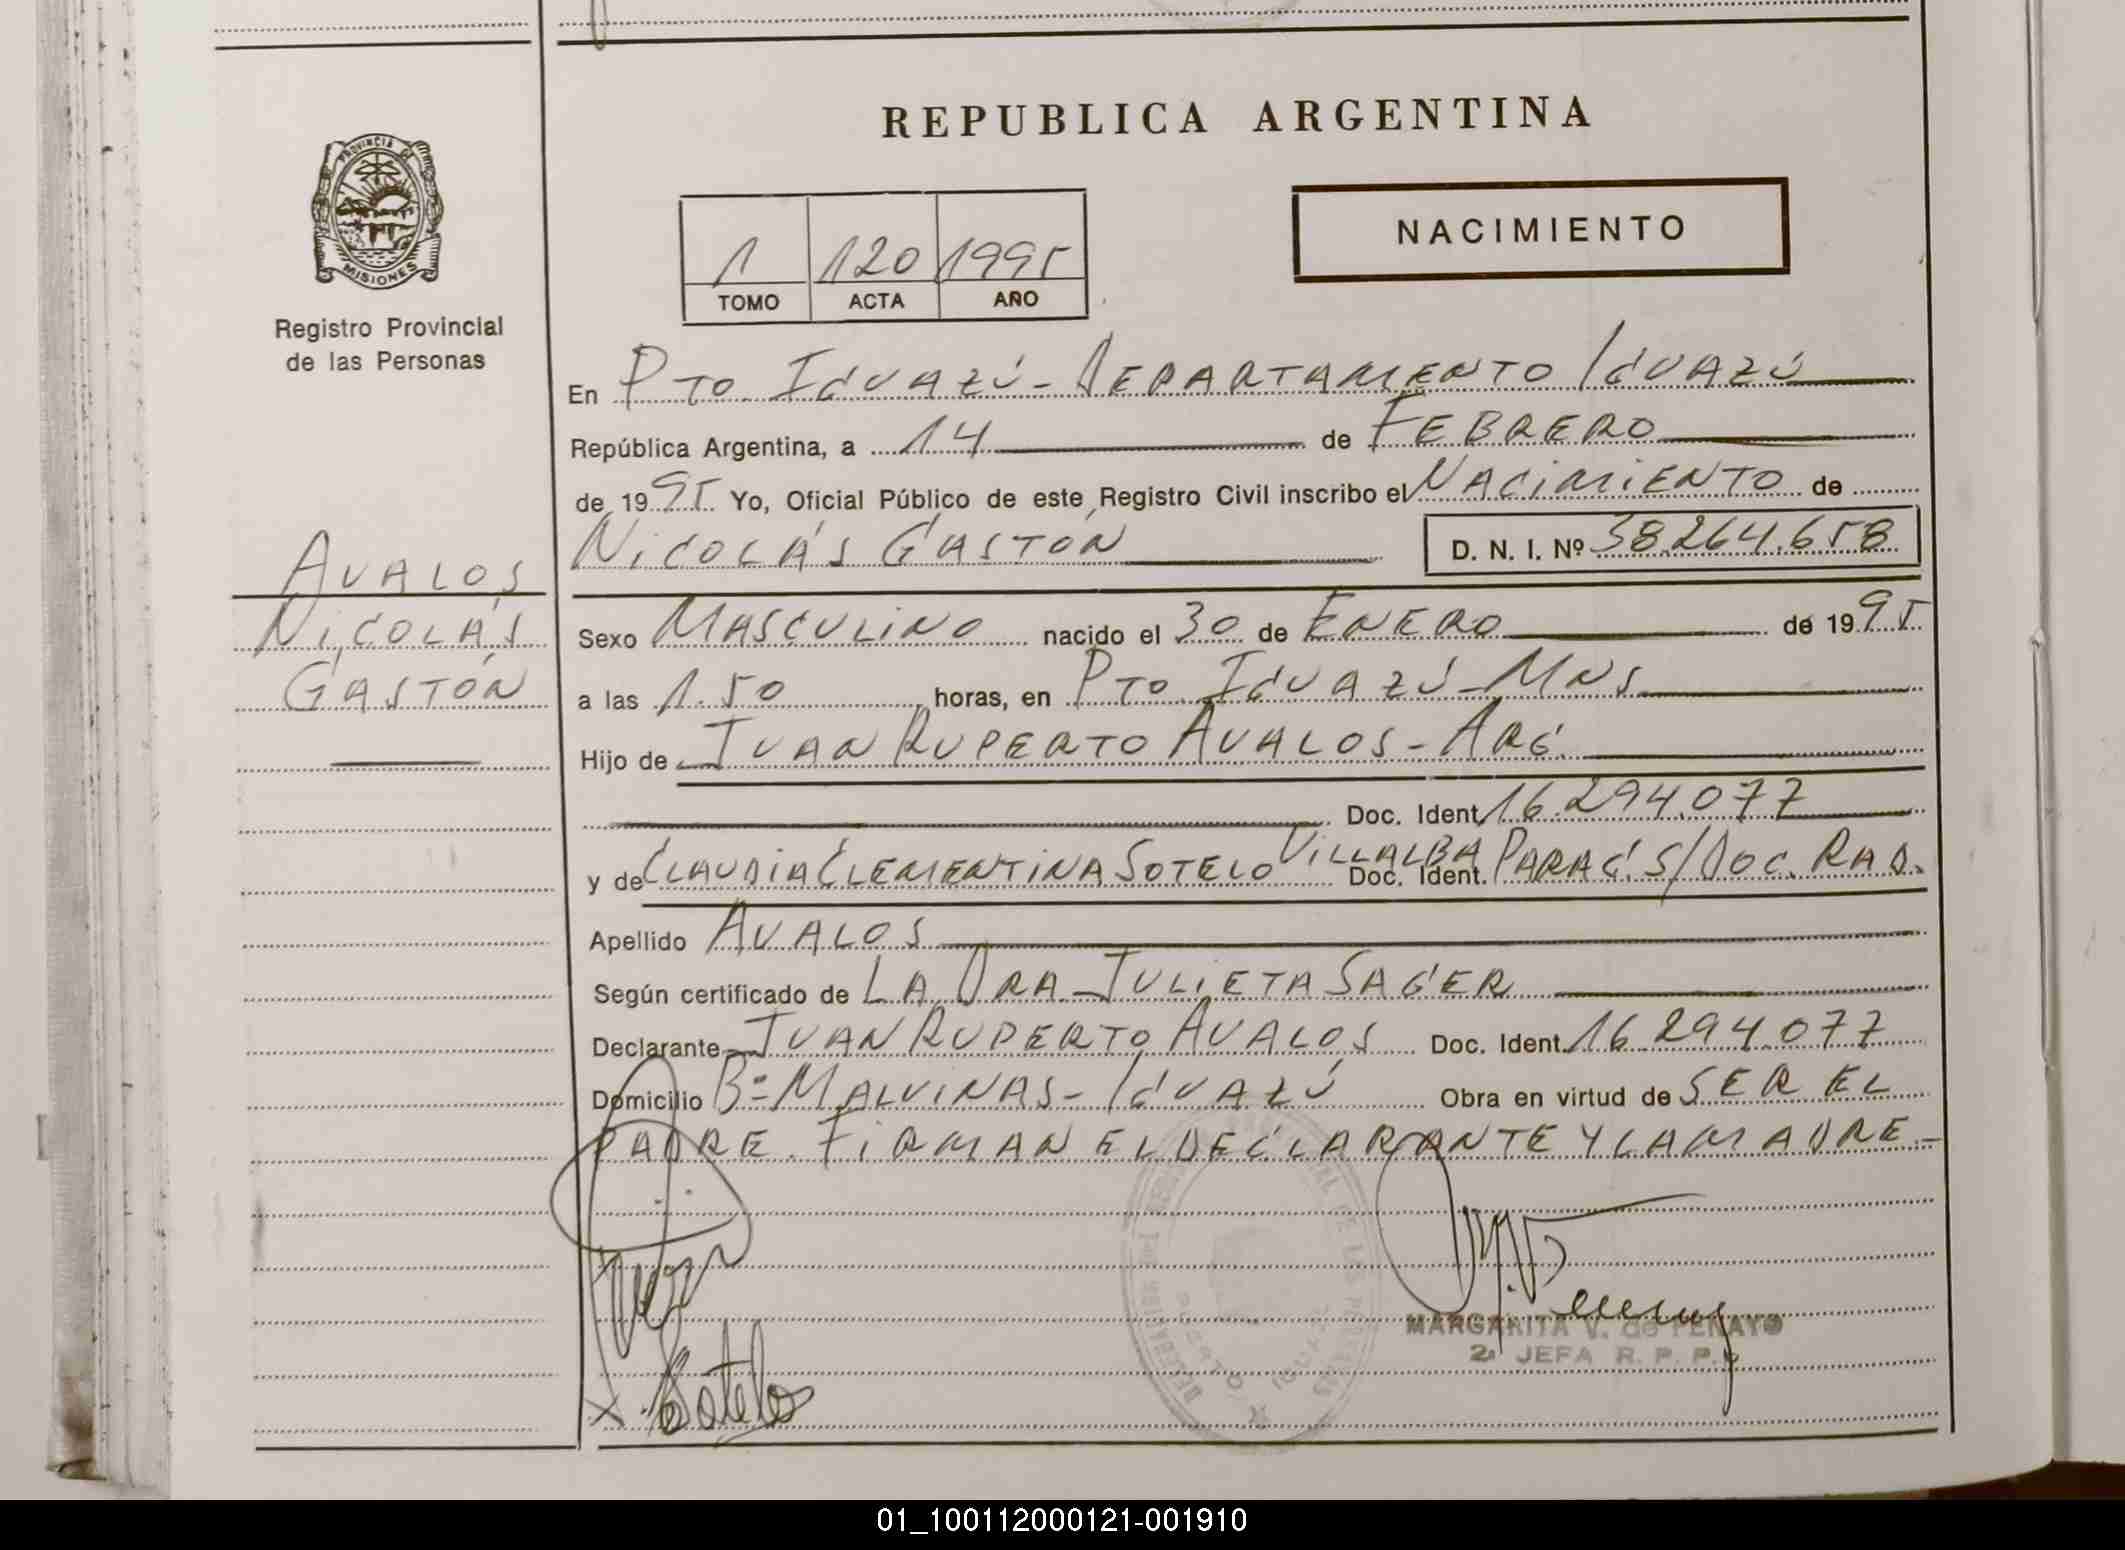 REPUBLICA ARGENTINA
PROVINCIA DE
MISIONES
Registro Provincial
de las Personas
NACIMIENTO
1 120 1995
TOMO ACTA AÑO
En Pto. Iguazú - Departamento Iguazú
República Argentina, a 14 de Febrero
de 1995 Yo, Oficial Público de este Registro Civil inscribo el Nacimiento de
Nicolás Gastón D. N. I. Nº 38.264.658
Avalos
Nicolás
Gastón
Sexo Masculino nacido el 30 de Enero de 1995
a las 1.50 horas, en Pto. Iguazú - Mns
Hijo de Juan Ruperto Avalos - Arg.
Doc. Ident. 16.294.077
y de Claudia Clementina Sotelo Villalba Doc. Ident. Parag. S/Doc. Rad.
Apellido Avalos
Según certificado de La Dra Julieta Sager
Declarante Juan Ruperto Avalos Doc. Ident. 16.294.077
Domicilio Bº Malvinas - Iguazú Obra en virtud de ser el
padre. Firman el declarante y la madre -
Sotelo
MARGARITA V. de PENAYO
2ª JEFA R. P. P.
01_100112000121-001910